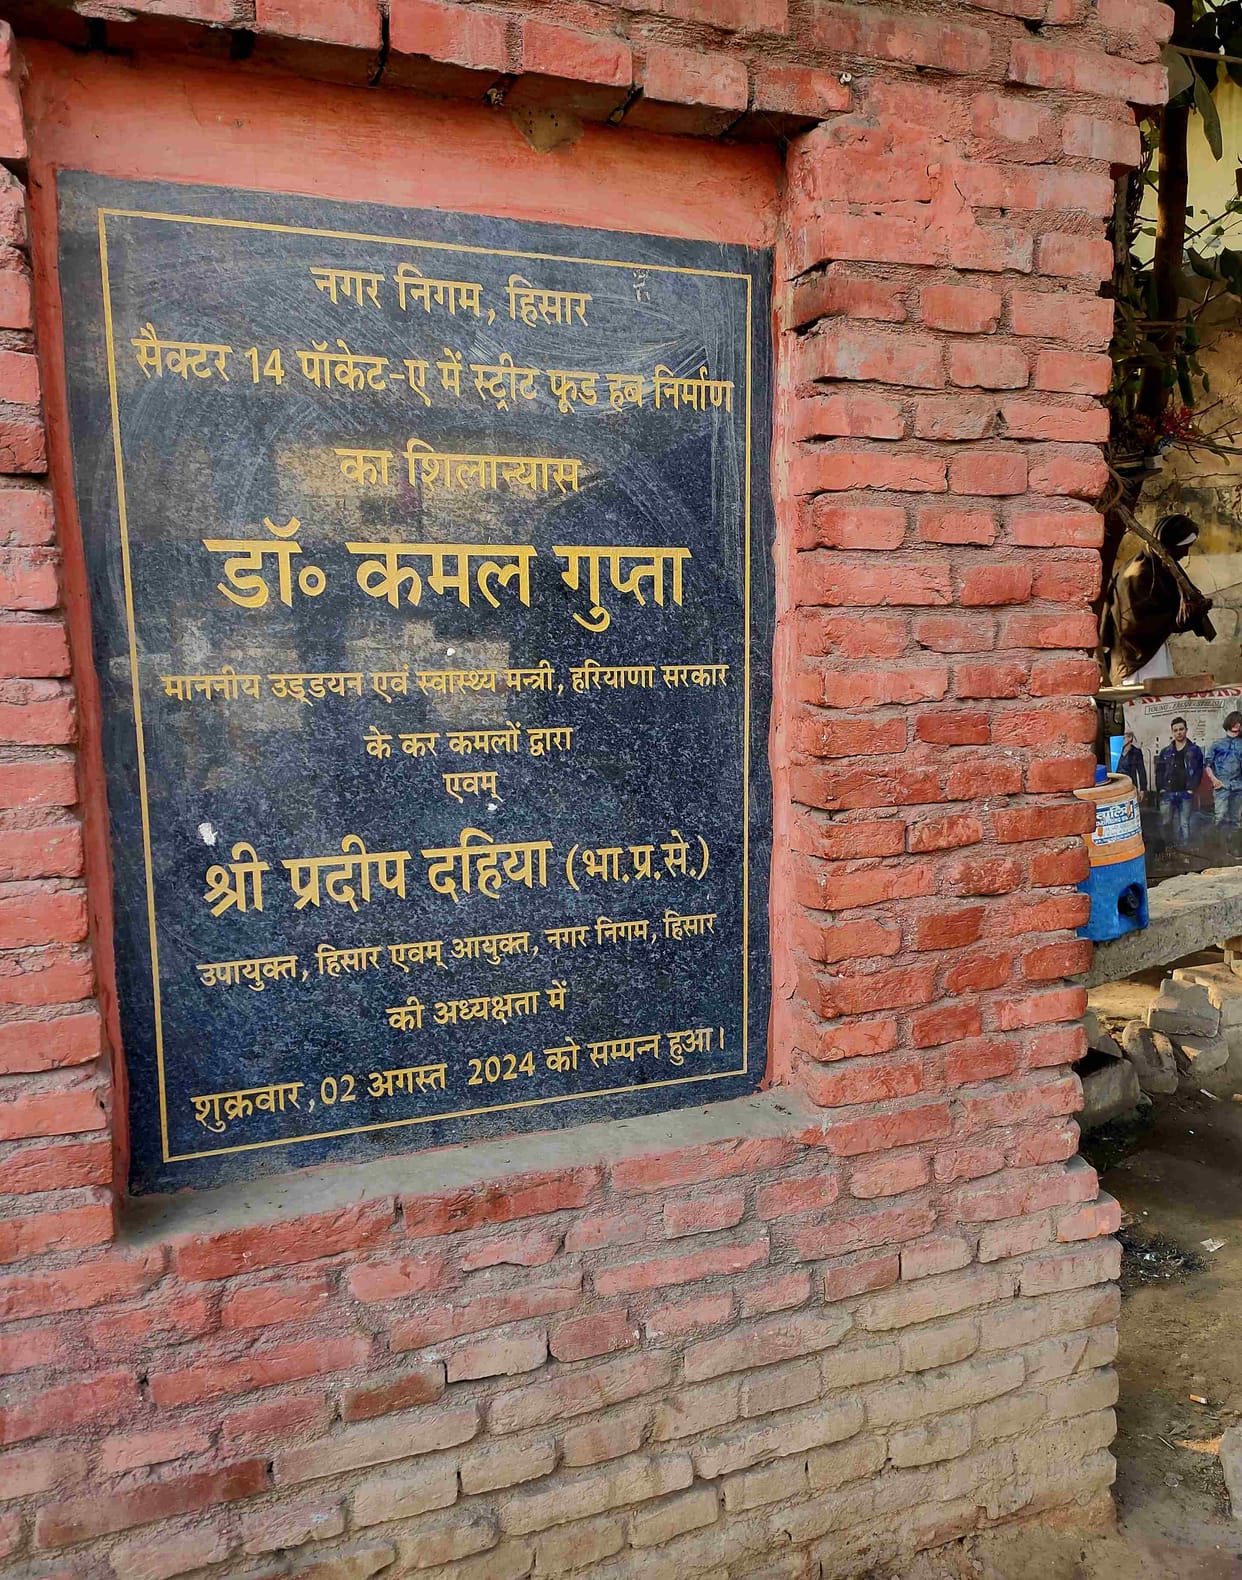 नगर निगम, हिसार
सैक्टर 14 पॉकेट-ए में स्ट्रीट फूड हब निर्माण
का शिलान्यास
डॉ॰ कमल गुप्ता
माननीय उड्डयन एवं स्वास्थ्य मन्त्री, हरियाणा सरकार
के कर कमलों द्वारा
एवम्
श्री प्रदीप दहिया (भा.प्र.से.)
उपायुक्त, हिसार एवम् आयुक्त, नगर निगम, हिसार
की अध्यक्षता में
शुक्रवार,02 अगस्त 2024 को सम्पन्न हुआ।